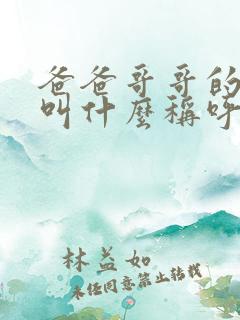 爸爸哥哥的
叫什麼稱呼
林益如
未任同意禁止转载